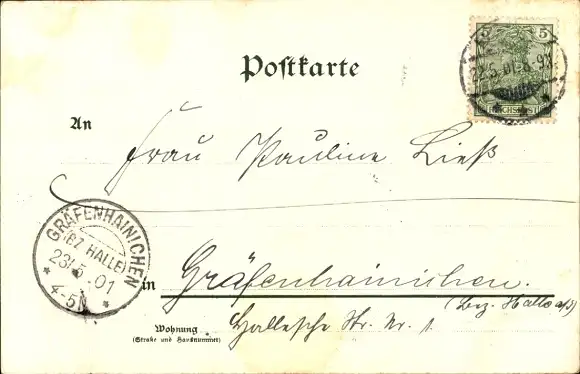 Postkarte
5 5
REICHSPOST
22.5.01. 8-9X
An
Frau Pauline Ließ
GRÄFENHAINICHEN
(BZ. HALLE)
23/5.01
4-5N
in Gräfenhainichen.
(Bez. Halle a/S)
Wohnung
(Straße und Hausnummer)
Hallesche Str. Nr. 1.